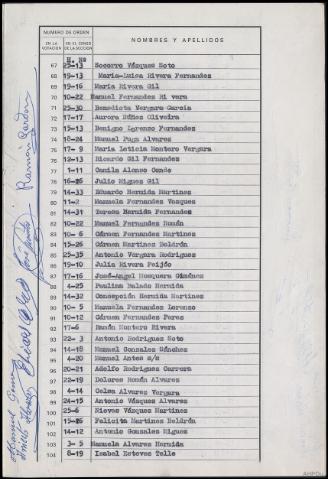 NUMERO DE ORDEN
NOMBRES Y APELLIDOS
EN LA VOTACION
EN EL CENSO DE LA SECCION
H. Nº
67 25-13 Socorro Vázquez Soto
68 19-13 Maria-Luisa Rivera Fernandez
69 19-16 Maria Rivera Gil
70 10-22 Manuel Fernandez Ri vera
71 25-30 Benedicta Vergara Garcia
72 17-17 Aurora Núñez Oliveira
73 15-13 Benigno Igrenso Fernandez
74 18-24 Manuel Puga Alvares
75 17-9 Maria Leticia Montero Vergara
76 12-13 Ricardo Gil Fernandez
77 1-11 Camila Alonso Conde
78 16-26 Julio Migues Gil
79 14-33 Eduardo Hermida Martinez
80 11-2 Manuela Fernandez Vasques
81 14-31 Teresa Hermida Fernandez
82 10-22 Manuel Fernandez Román
83 10-6 Cármen Fernandez Martinez
84 15-26 Cármen Martinez Beldrán
85 25-35 Antonio Vergara Rodriguez
86 19-10 Julia Rivera Feijóo
87 17-16 José-Angel Mosquera Giménez
88 4-25 Paulina Dalado Hermida
89 14-32 Concepción Hermida Martinez
90 10-5 Manuela Fernandez Lorenzo
91 10-12 Cármen Fernandez Perez
92 17-6 Ramón Montero Rivera
93 22-3 Antonio Rodriguez Soto
94 14-18 Manuel Gonzales Sánchez
95 4-20 Manuel Antes s/s
96 20-21 Adolfo Rodriguez Carrera
97 22-19 Dolores Román Alvares
98 4-14 Celsa Alvarez Vergara
99 24-15 Antonio Vázquez Alvarez
100 25-6 Nieves Vázquez Martinez
101 15-26 Felicita Martinez Beldrán
102 14-12 Antonio Gonzales Migues
103 3-5 Manuela Alvarez Hermida
104 8-19 Isabel Esteves Telle
AHPOu